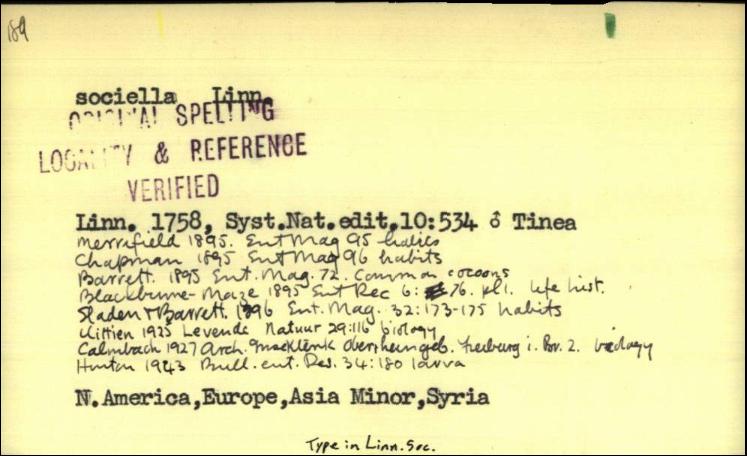 189
sociella Linn.
ORIGINAL SPELLING
LOCALITY & REFERENCE
VERIFIED
Linn. 1758, Syst.Nat.edit.10:534 ♂ Tinea
Merrifield 1895. Ent Mag 95 habits
Chapman 1895 Ent Mag 96 habits
Barrett. 1895 Ent. Mag. 72. Common cocoons
Blackburne-Maze 1895 Ent Rec 6: 76. pl 1. life hist.
Sladen & Barrett. 1896 Ent. Mag. 32:173-175 habits
1925 Levende Natuur 29:116 biology
Calmbach 1927 Arch. Insektenk Oberrheingeb. Freiburg i. Br. 2. biology
Hinton 1943 Bull. ent. Res. 34:180 larva
N.America,Europe,Asia Minor,Syria
Type in Linn. Soc.